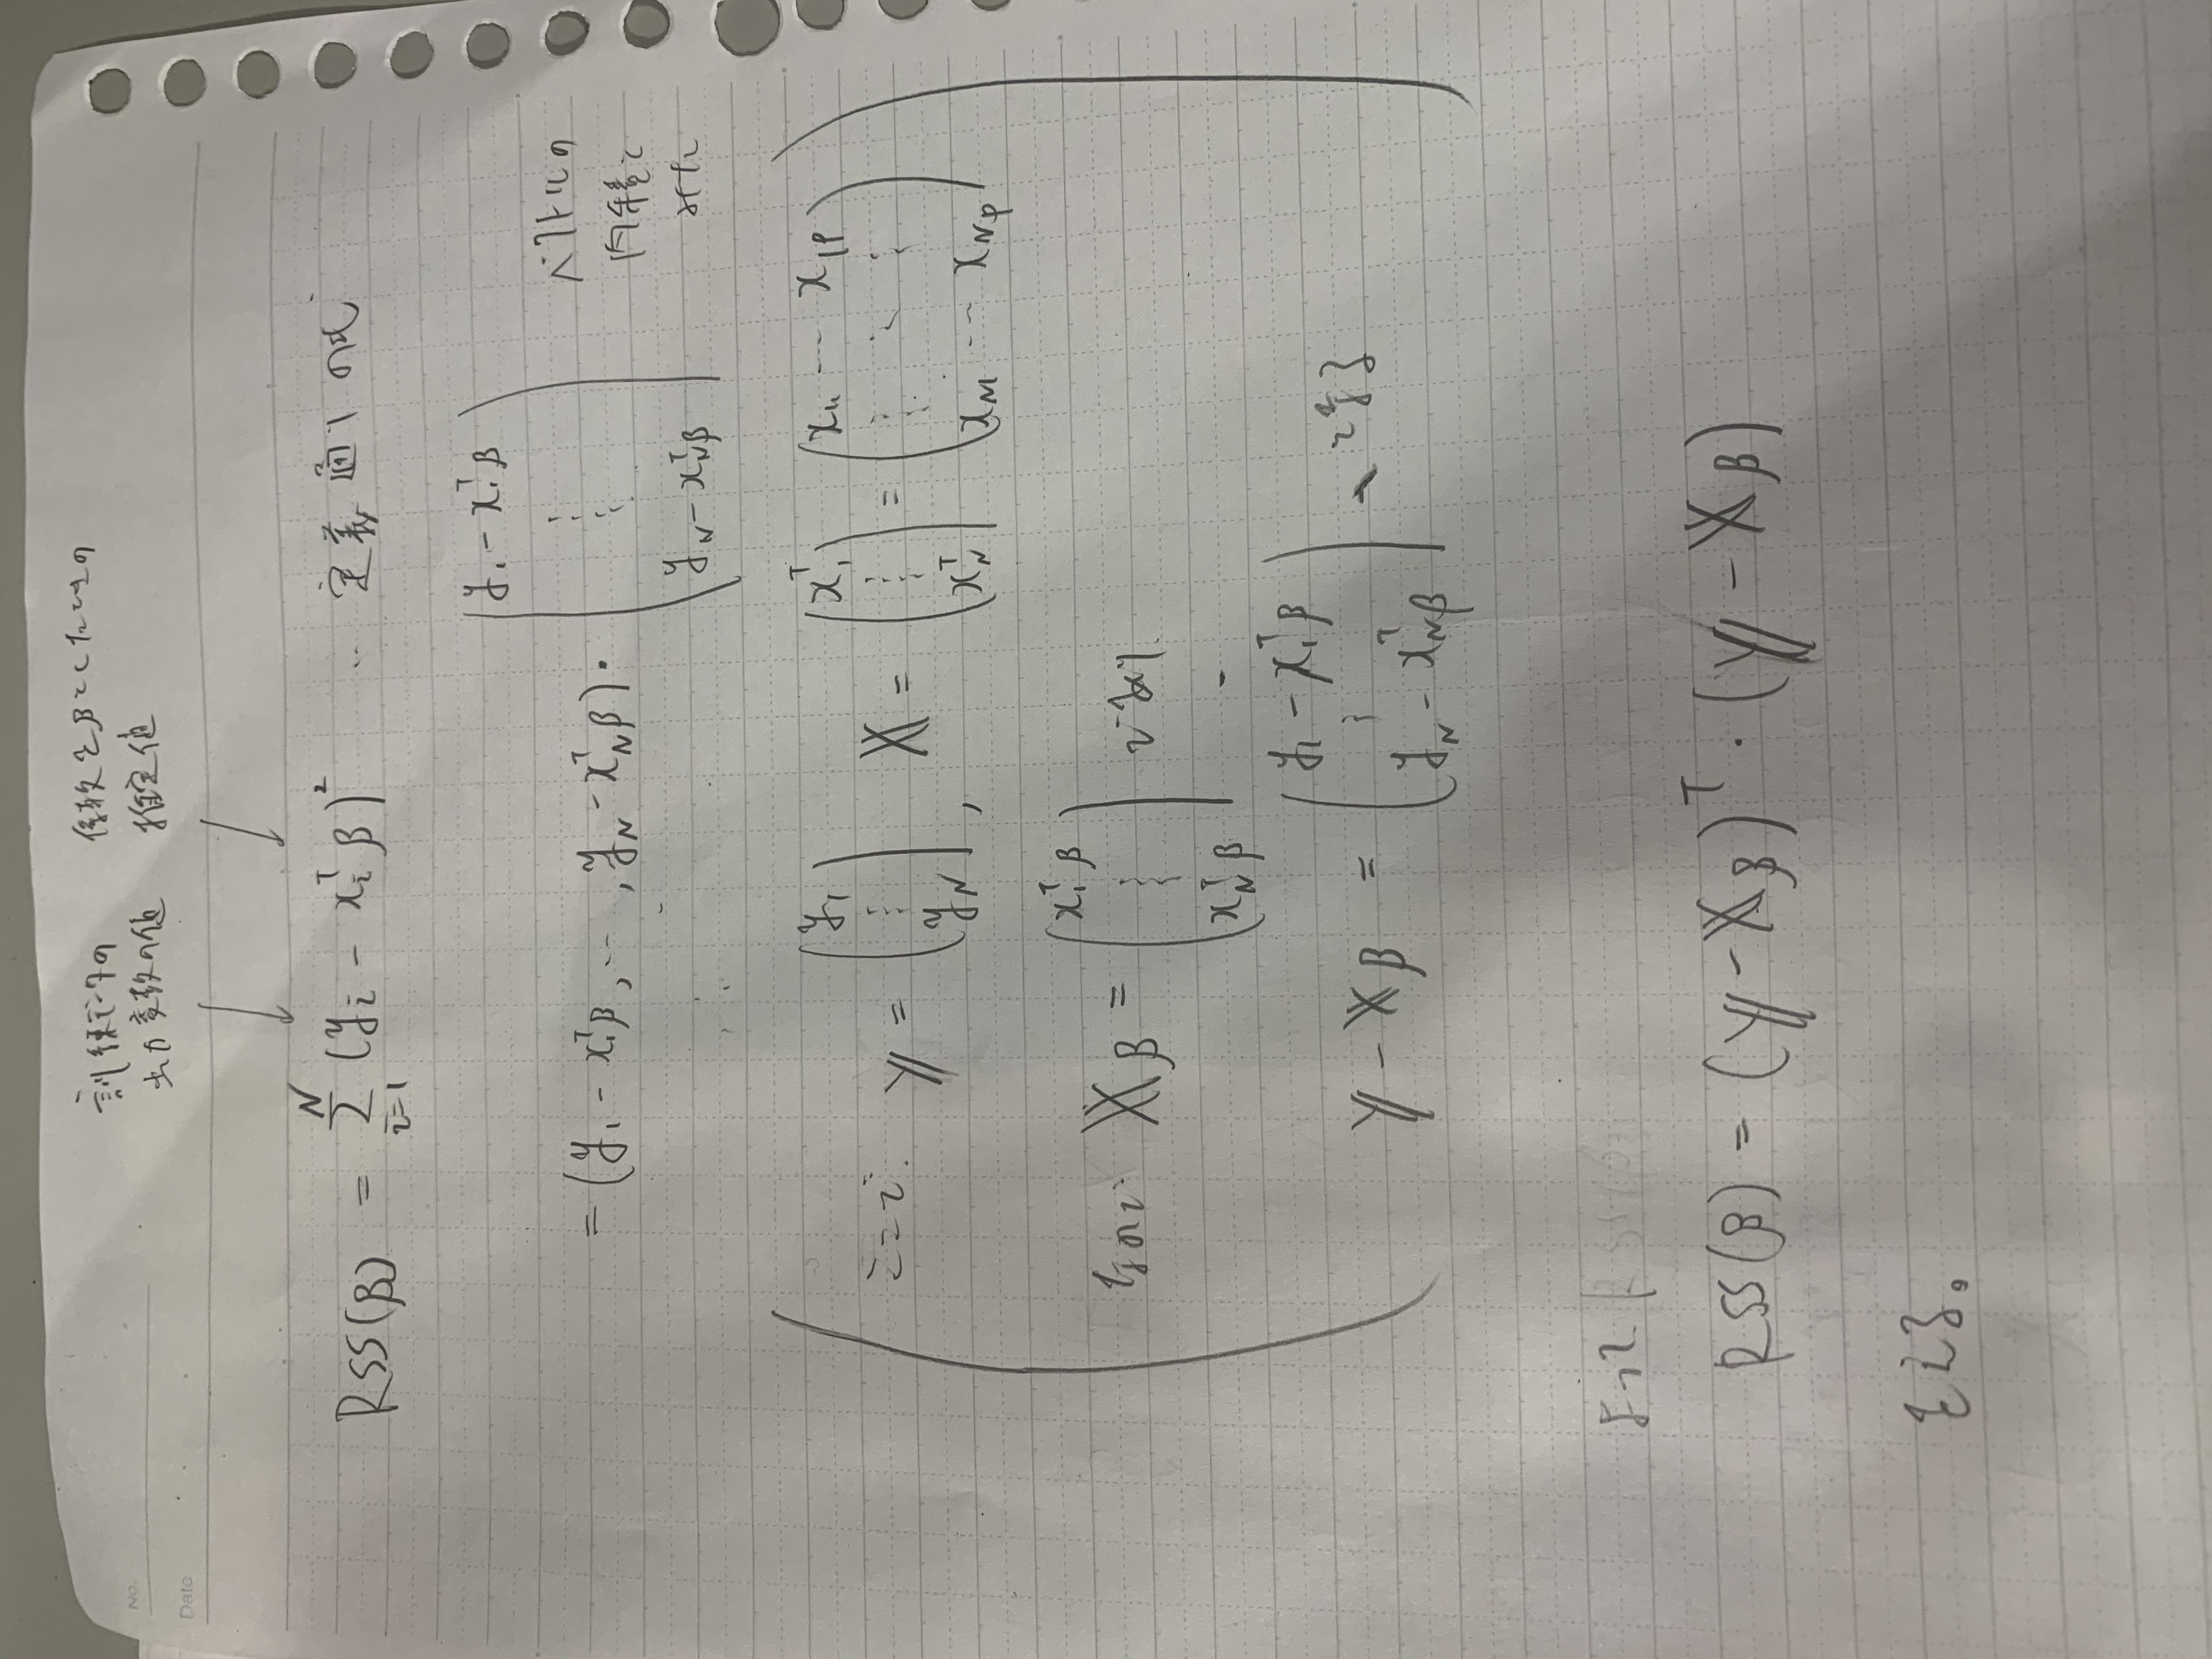 No.
Date
訓練データの 係数をβとしたときの
出力変数の値 推定値
RSS(β) = Σ_{i=1}^{N} (y_i − x_i^T β)^2 … 定義通りの式
= (y_1 − x_1^T β, …, y_N − x_N^T β) · (y_1 − x_1^T β ⋮ y_N − x_N^T β) ベクトルの
内積と
みた
ここで 𝕐 = (y_1 ⋮ y_N), 𝕏 = (x_1^T ⋮ x_N^T) = (x_11 … x_1p ⋮ ⋱ ⋮ x_N1 … x_Np)
なので 𝕏β = (x_1^T β ⋮ x_N^T β) であり
𝕐 − 𝕏β = (y_1 − x_1^T β ⋮ y_N − x_N^T β) となる
よって
RSS(β) = (𝕐 − 𝕏β)^T · (𝕐 − 𝕏β)
を得る。